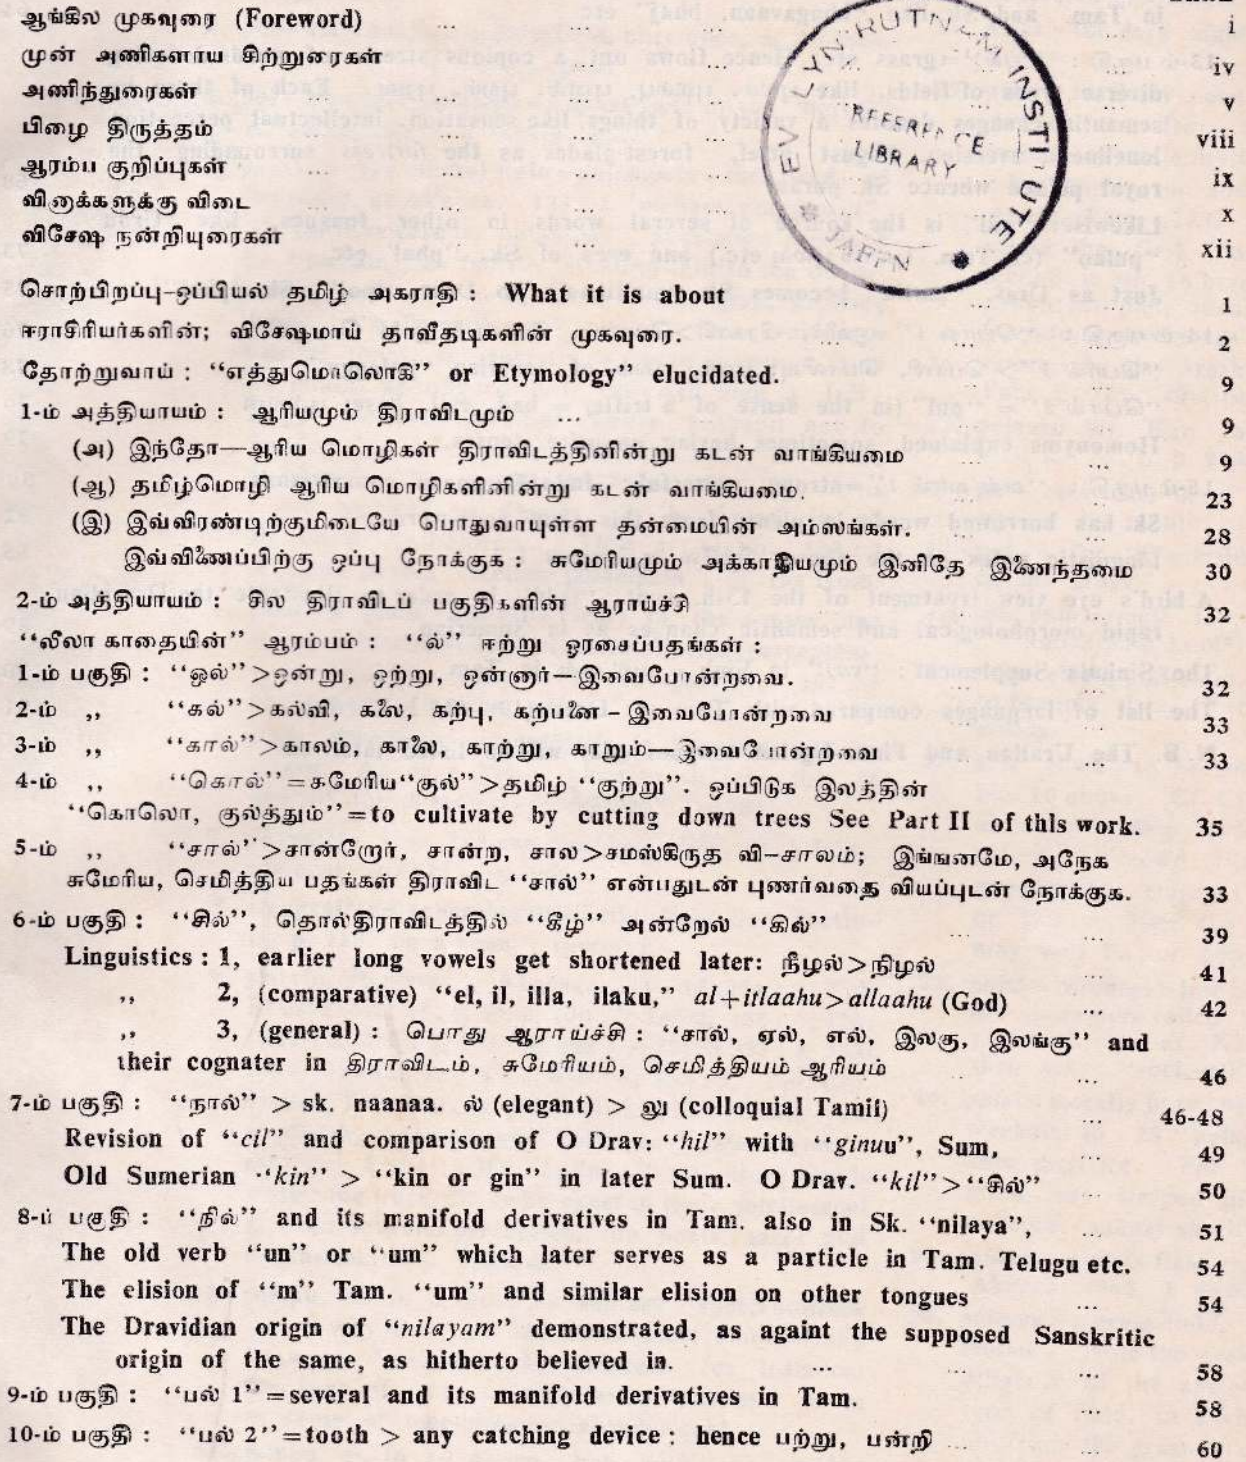 ஆங்கில முகவுரை (Foreword) ... ... ... ... i
முன் அணிகளாய சிற்றுரைகள் ... ... ... iv
அணிந்துரைகள் ... ... ... ... v
பிழை திருத்தம் ... ... ... ... viii
ஆரம்ப குறிப்புகள் ... ... ... ... ix
வினாக்களுக்கு விடை ... ... ... ... x
விசேஷ நன்றியுரைகள் ... ... ... xii
EV LYN RUTNAM INSTITUTE
REFERENCE
LIBRARY
* JAFFN *
சொற்பிறப்பு-ஒப்பியல் தமிழ் அகராதி : What it is about ... 1
ஈராசிரியர்களின்; விசேஷமாய் தாவீதடிகளின் முகவுரை. ... ... 2
தோற்றுவாய் : “எத்துமொலொகி” or Etymology” elucidated. ... ... 9
1-ம் அத்தியாயம் : ஆரியமும் திராவிடமும் ... ... ... 9
(அ) இந்தோ—ஆரிய மொழிகள் திராவிடத்தினின்று கடன் வாங்கியமை ... ... 9
(ஆ) தமிழ்மொழி ஆரிய மொழிகளினின்று கடன் வாங்கியமை. ... ... 23
(இ) இவ்விரண்டிற்குமிடையே பொதுவாயுள்ள தன்மையின் அம்ஸங்கள். ... ... 28
இவ்விணைப்பிற்கு ஒப்பு நோக்குக : சுமேரியமும் அக்காதியமும் இனிதே இணைந்தமை 30
2-ம் அத்தியாயம் : சில திராவிடப் பகுதிகளின் ஆராய்ச்சி ... ... 32
“லீலா காதையின்” ஆரம்பம் : “ல்” ஈற்று ஓரசைப்பதங்கள் :
1-ம் பகுதி : “ஒல்” >ஒன்று, ஒற்று, ஒன்னார்—இவைபோன்றவை. ... ... 32
2-ம் ,, “கல்” >கல்வி, கலை, கற்பு, கற்பனை – இவைபோன்றவை ... ... 33
3-ம் ,, “கால்” >காலம், காலை, காற்று, காறும்—இவைபோன்றவை ... 33
4-ம் ,, “கொல்” =சுமேரிய “குல்” >தமிழ் “குற்று”. ஒப்பிடுக இலத்தின்
“கொலொ, குல்த்தும்” =to cultivate by cutting down trees See Part II of this work. 35
5-ம் ,, “சால்” >சான்றோர், சான்ற, சால >சமஸ்கிருத வி-சாலம்; இங்ஙனமே, அநேக
சுமேரிய, செமித்திய பதங்கள் திராவிட “சால்” என்பதுடன் புணர்வதை வியப்புடன் நோக்குக. 33
6-ம் பகுதி : “சில்”, தொல்திராவிடத்தில் “கீழ்” அன்றேல் “கில்” ... ... 39
Linguistics : 1, earlier long vowels get shortened later: நீழல் >நிழல் ... ... 41
,, 2, (comparative) “el, il, illa, ilaku,” al+itlaahu>allaahu (God) ... 42
,, 3, (general) : பொது ஆராய்ச்சி : “சால், ஏல், எல், இலகு, இலங்கு” and
their cognater in திராவிடம், சுமேரியம், செமித்தியம் ஆரியம் ... ... 46
7-ம் பகுதி : “நால்” > sk. naanaa. ல் (elegant) > லு (colloquial Tamil) ... 46-48
Revision of “cil” and comparison of O Drav: “hil” with “ginuu”, Sum, ... 49
Old Sumerian “kin” > “kin or gin” in later Sum. O Drav. “kil” > “சில்” 50
8-ம் பகுதி : “நில்” and its manifold derivatives in Tam. also in Sk. “nilaya”, ... 51
The old verb “un” or “um” which later serves as a particle in Tam. Telugu etc. 54
The elision of “m” Tam. “um” and similar elision on other tongues ... 54
The Dravidian origin of “nilayam” demonstrated, as againt the supposed Sanskritic
origin of the same, as hitherto believed in. ... ... ... 58
9-ம் பகுதி : “பல் 1” =several and its manifold derivatives in Tam. ... 58
10-ம் பகுதி : “பல் 2” =tooth > any catching device : hence பற்று, பன்றி ... ... 60